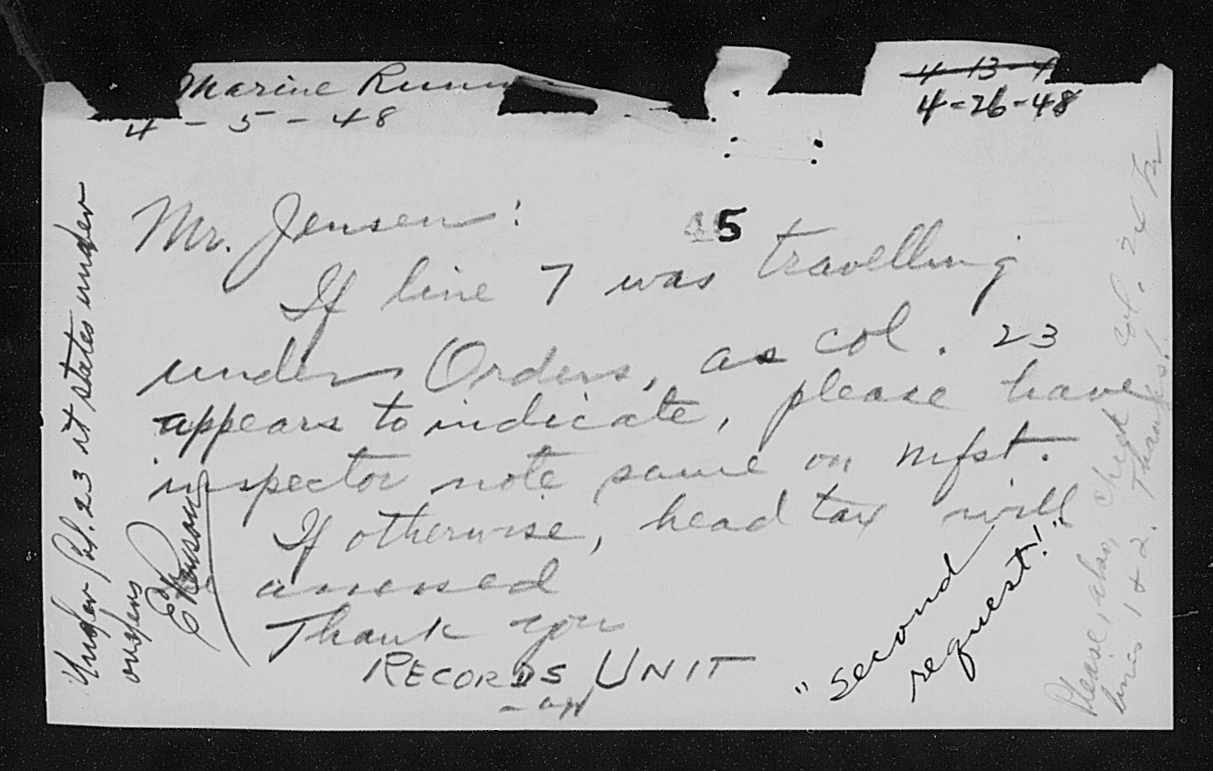 Marine
4-5-48
4-13-4
4-26-48
Mr. Jensen:
5
If line 7 was travelling
under Orders, as col. 23
appears to indicate, please have
inspector note same on mfst.
If otherwise, head tax will
assessed
Thank you
RECORDS UNIT
"second
request!"
Under Col. 23 it states under
orders
Please, also, check col. 24 for
lines 1 & 2. Thanks!